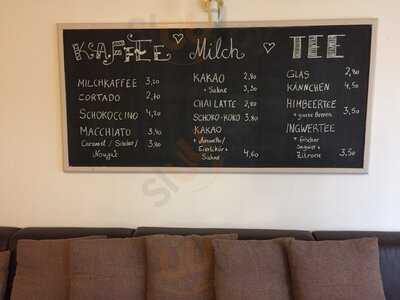 KAFFEE ♡ Milch ♡ TEE
MILCHKAFFEE 3,20
CORTADO 2,40
SCHOKOCCINO 4,20
MACCHIATO 3,40
Caramel / Schoko / 3,80
Nougat
KAKAO 2,80
+ Sahne 3,30
CHAI LATTE 2,80
SCHOKO-KOKO 3,80
KAKAO
+ Amaretto /
Eierlikör +
Sahne 4,60
GLAS 2,40
KÄNNCHEN 4,50
HIMBEERTEE 3,50
+ ganze Beeren
INGWERTEE
+ frischer
Ingwer +
Zitrone 3,50